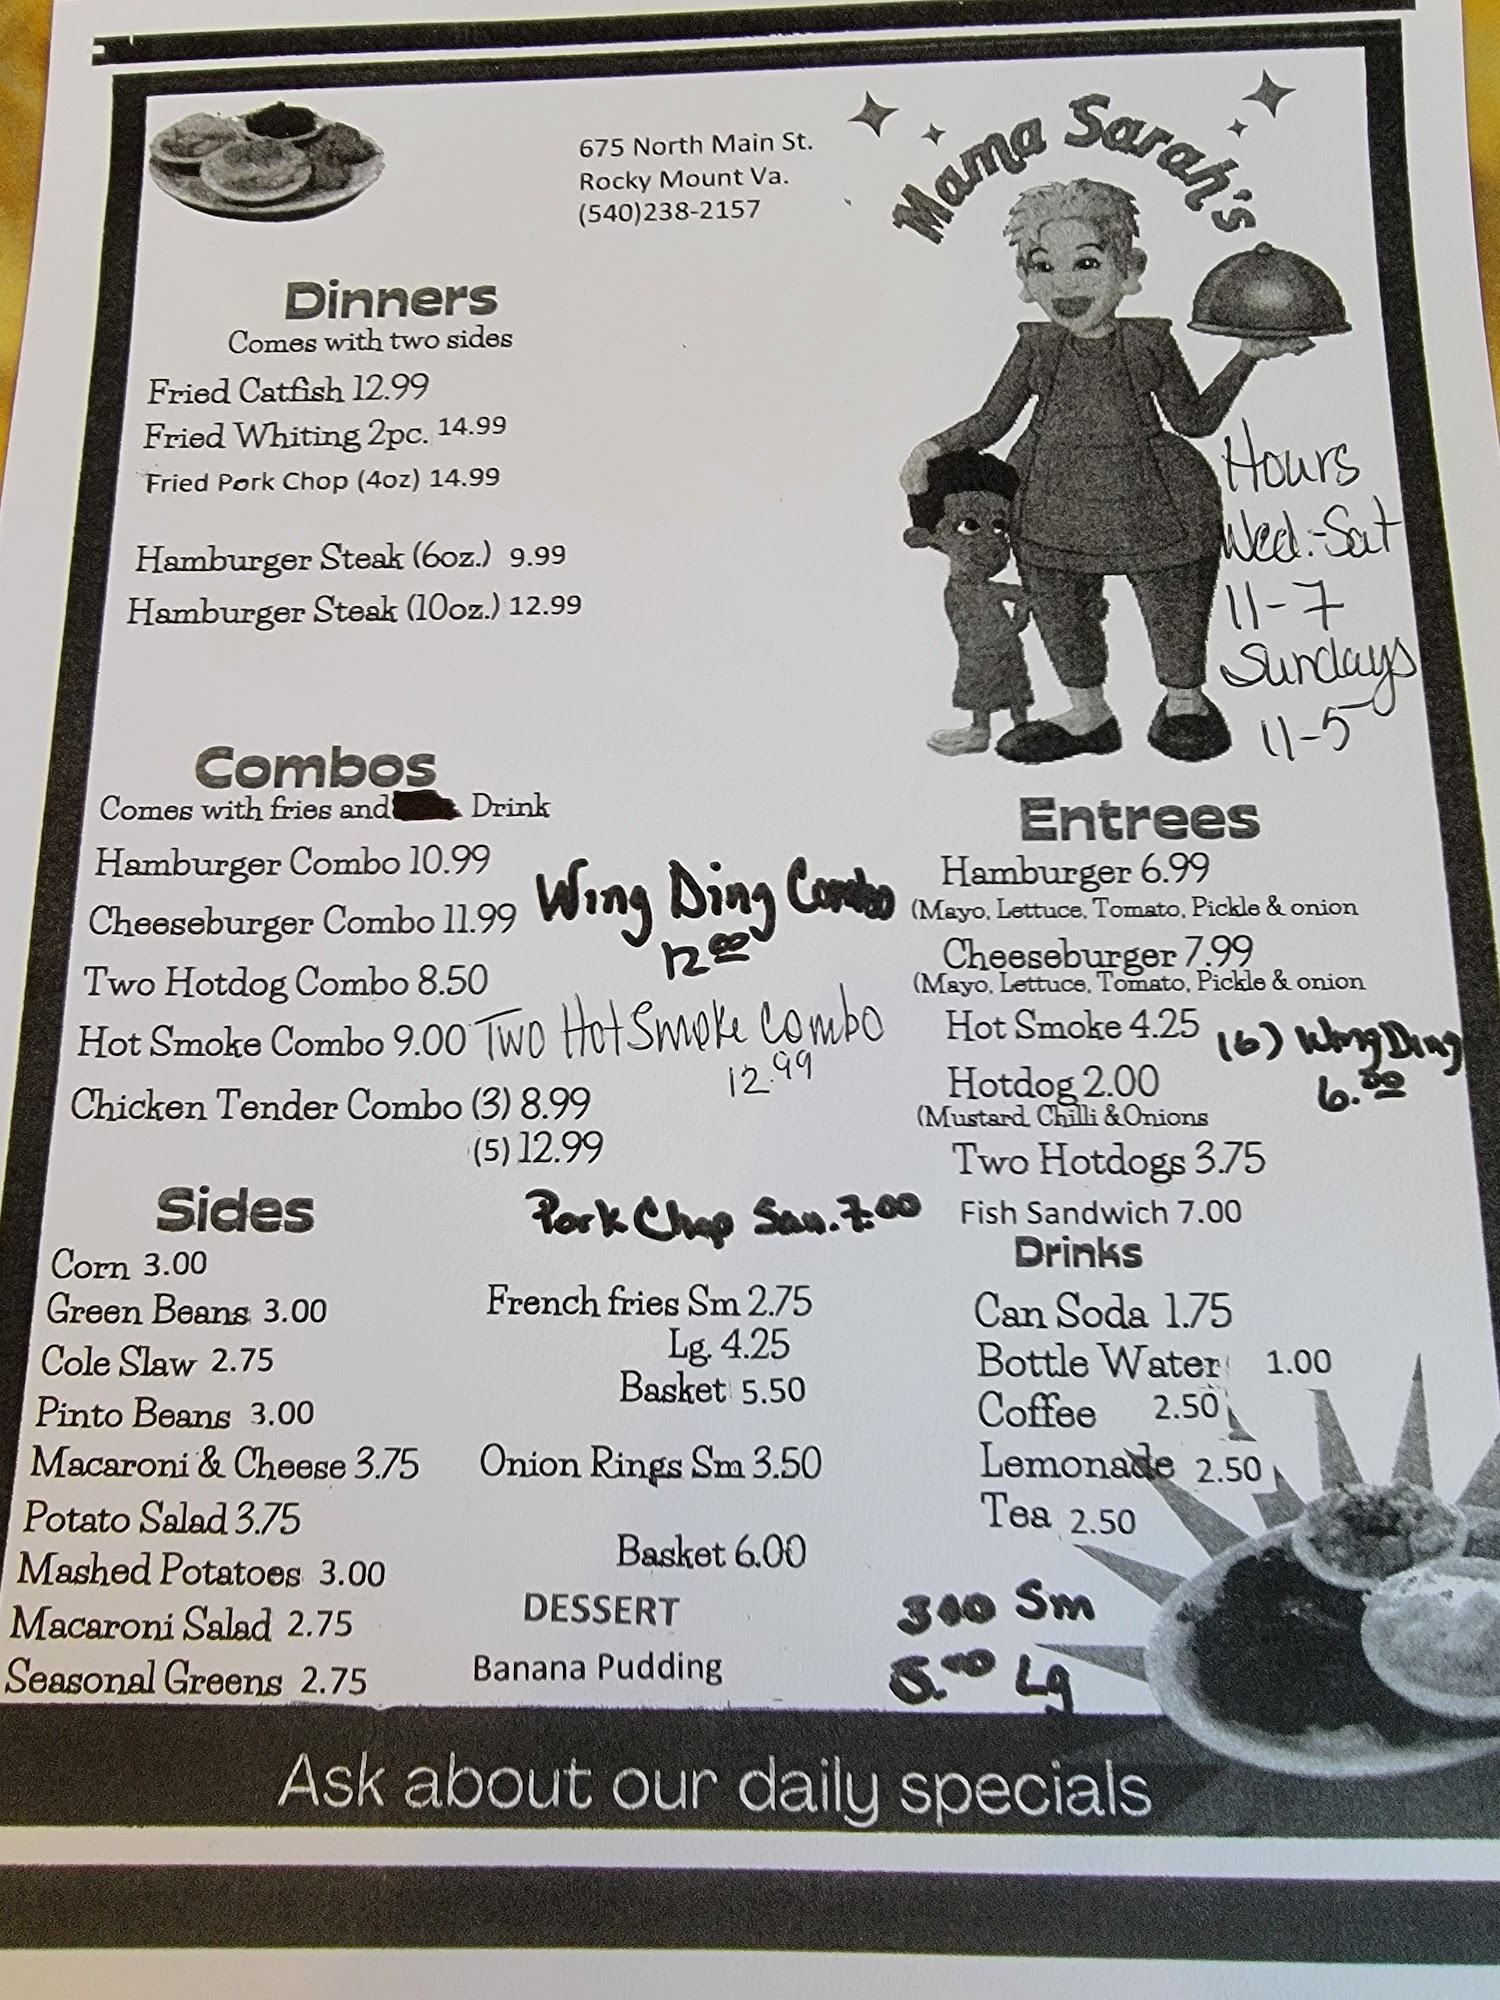 675 North Main St.
Rocky Mount Va.
(540)238-2157
Mama Sarah's
Hours
Wed.-Sat
11-7
Sundays
11-5
Dinners
Comes with two sides
Fried Catfish 12.99
Fried Whiting 2pc. 14.99
Fried Pork Chop (4oz) 14.99
Hamburger Steak (6oz.) 9.99
Hamburger Steak (10oz.) 12.99
Combos
Comes with fries and Drink
Hamburger Combo 10.99
Cheeseburger Combo 11.99
Two Hotdog Combo 8.50
Hot Smoke Combo 9.00
Chicken Tender Combo (3) 8.99
(5) 12.99
Wing Ding Combo
12.00
Two Hot Smoke Combo
12.99
Entrees
Hamburger 6.99
(Mayo, Lettuce, Tomato, Pickle & onion
Cheeseburger 7.99
(Mayo, Lettuce, Tomato, Pickle & onion
Hot Smoke 4.25
(6) Wing Ding
6.00
Hotdog 2.00
(Mustard, Chilli & Onions
Two Hotdogs 3.75
Fish Sandwich 7.00
Pork Chop San. 7.00
Sides
Corn 3.00
Green Beans 3.00
Cole Slaw 2.75
Pinto Beans 3.00
Macaroni & Cheese 3.75
Potato Salad 3.75
Mashed Potatoes 3.00
Macaroni Salad 2.75
Seasonal Greens 2.75
French fries Sm 2.75
Lg. 4.25
Basket 5.50
Onion Rings Sm 3.50
Basket 6.00
DESSERT
Banana Pudding
3.00 Sm
5.00 Lg
Drinks
Can Soda 1.75
Bottle Water 1.00
Coffee 2.50
Lemonade 2.50
Tea 2.50
Ask about our daily specials